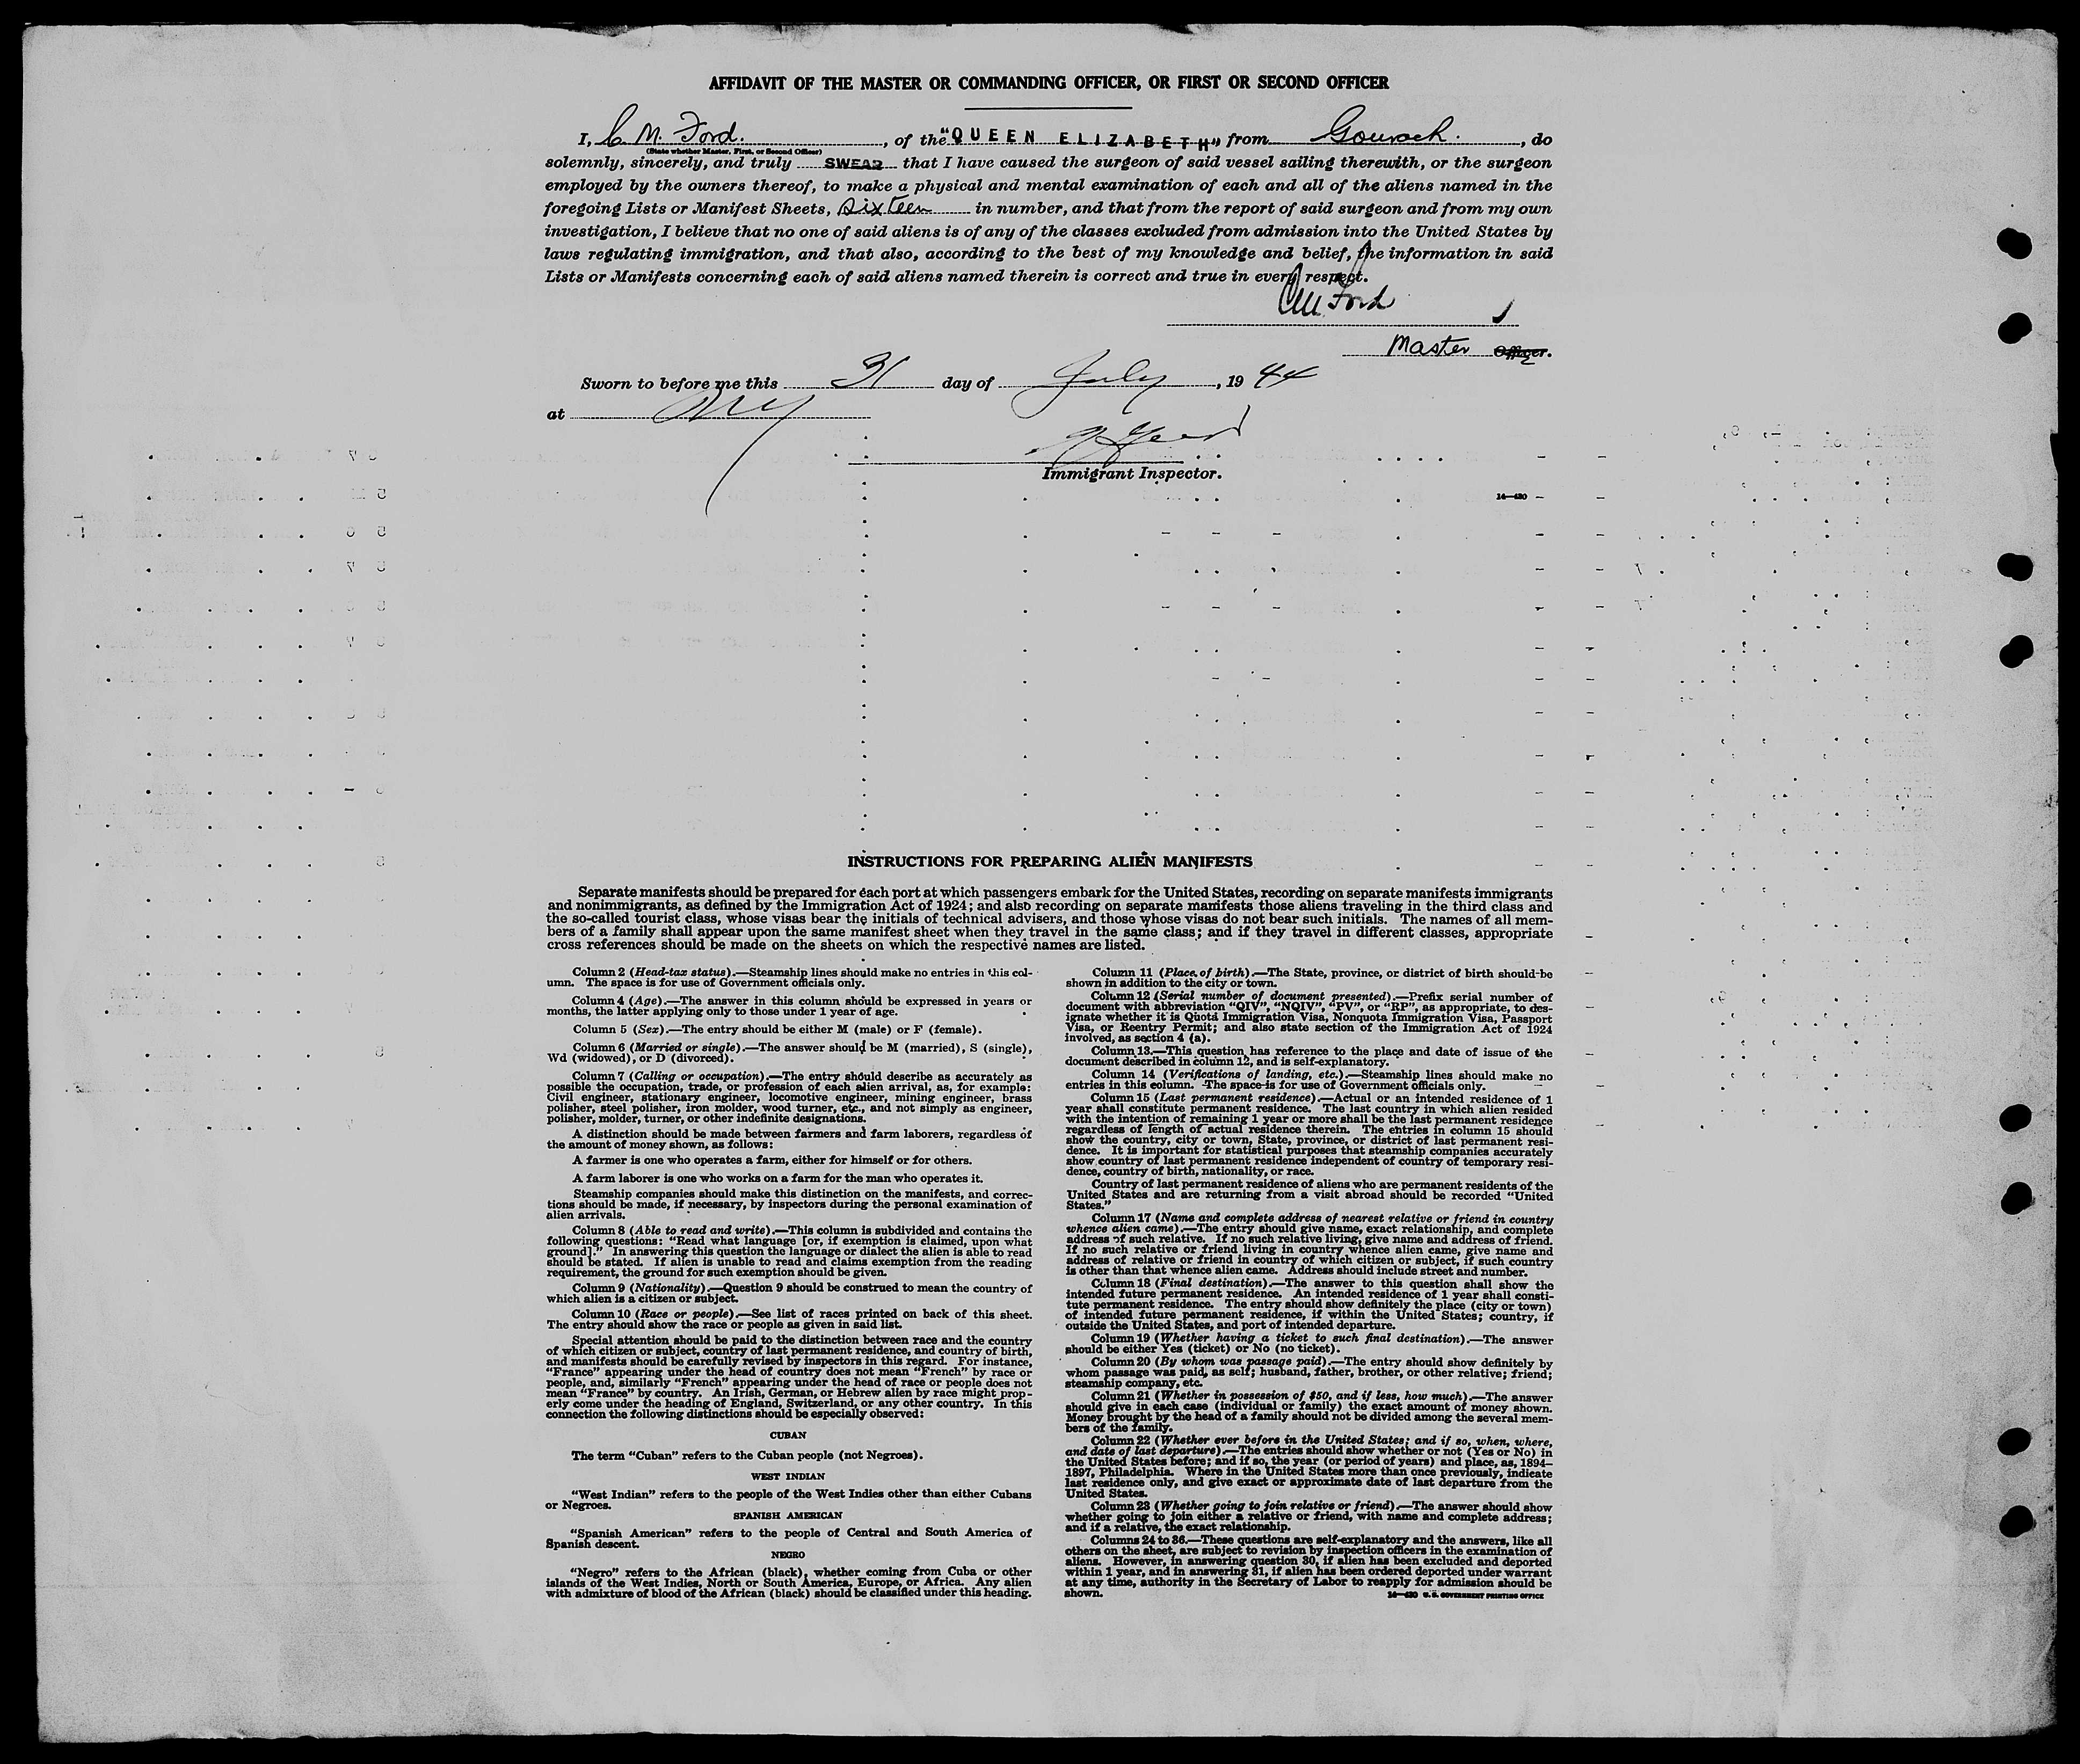 AFFIDAVIT OF THE MASTER OR COMMANDING OFFICER, OR FIRST OR SECOND OFFICER
I, C. M. Ford. , of the "QUEEN ELIZABETH" from Gourock. , do
(State whether Master, First, or Second Officer)
solemnly, sincerely, and truly SWEAR that I have caused the surgeon of said vessel sailing therewith, or the surgeon
employed by the owners thereof, to make a physical and mental examination of each and all of the aliens named in the
foregoing Lists or Manifest Sheets, sixteen in number, and that from the report of said surgeon and from my own
investigation, I believe that no one of said aliens is of any of the classes excluded from admission into the United States by
laws regulating immigration, and that also, according to the best of my knowledge and belief, the information in said
Lists or Manifests concerning each of said aliens named therein is correct and true in every respect.
CM Ford
Master Officer.
Sworn to before me this 31 day of July , 19 44
at NY
Immigrant Inspector.
14—420
INSTRUCTIONS FOR PREPARING ALIEN MANIFESTS
Separate manifests should be prepared for each port at which passengers embark for the United States, recording on separate manifests immigrants
and nonimmigrants, as defined by the Immigration Act of 1924; and also recording on separate manifests those aliens traveling in the third class and
the so-called tourist class, whose visas bear the initials of technical advisers, and those whose visas do not bear such initials. The names of all mem-
bers of a family shall appear upon the same manifest sheet when they travel in the same class; and if they travel in different classes, appropriate
cross references should be made on the sheets on which the respective names are listed.
Column 2 (Head-tax status).—Steamship lines should make no entries in this col-
umn. The space is for use of Government officials only.
Column 4 (Age).—The answer in this column should be expressed in years or
months, the latter applying only to those under 1 year of age.
Column 5 (Sex).—The entry should be either M (male) or F (female).
Column 6 (Married or single).—The answer should be M (married), S (single),
Wd (widowed), or D (divorced).
Column 7 (Calling or occupation).—The entry should describe as accurately as
possible the occupation, trade, or profession of each alien arrival, as, for example:
Civil engineer, stationary engineer, locomotive engineer, mining engineer, brass
polisher, steel polisher, iron molder, wood turner, etc., and not simply as engineer,
polisher, molder, turner, or other indefinite designations.
A distinction should be made between farmers and farm laborers, regardless of
the amount of money shown, as follows:
A farmer is one who operates a farm, either for himself or for others.
A farm laborer is one who works on a farm for the man who operates it.
Steamship companies should make this distinction on the manifests, and correc-
tions should be made, if necessary, by inspectors during the personal examination of
alien arrivals.
Column 8 (Able to read and write).—This column is subdivided and contains the
following questions: "Read what language [or, if exemption is claimed, upon what
ground]." In answering this question the language or dialect the alien is able to read
should be stated. If alien is unable to read and claims exemption from the reading
requirement, the ground for such exemption should be given.
Column 9 (Nationality).—Question 9 should be construed to mean the country of
which alien is a citizen or subject.
Column 10 (Race or people).—See list of races printed on back of this sheet.
The entry should show the race or people as given in said list.
Special attention should be paid to the distinction between race and the country
of which citizen or subject, country of last permanent residence, and country of birth,
and manifests should be carefully revised by inspectors in this regard. For instance,
"France" appearing under the head of country does not mean "French" by race or
people, and, similarly "French" appearing under the head of race or people does not
mean "France" by country. An Irish, German, or Hebrew alien by race might prop-
erly come under the heading of England, Switzerland, or any other country. In this
connection the following distinctions should be especially observed:
CUBAN
The term "Cuban" refers to the Cuban people (not Negroes).
WEST INDIAN
"West Indian" refers to the people of the West Indies other than either Cubans
or Negroes.
SPANISH AMERICAN
"Spanish American" refers to the people of Central and South America of
Spanish descent.
NEGRO
"Negro" refers to the African (black), whether coming from Cuba or other
islands of the West Indies, North or South America, Europe, or Africa. Any alien
with admixture of blood of the African (black) should be classified under this heading.
Column 11 (Place of birth).—The State, province, or district of birth should be
shown in addition to the city or town.
Column 12 (Serial number of document presented).—Prefix serial number of
document with abbreviation "QIV", "NQIV", "PV", or "RP", as appropriate, to des-
ignate whether it is Quota Immigration Visa, Nonquota Immigration Visa, Passport
Visa, or Reentry Permit; and also state section of the Immigration Act of 1924
involved, as section 4 (a).
Column 13.—This question has reference to the place and date of issue of the
document described in column 12, and is self-explanatory.
Column 14 (Verifications of landing, etc.).—Steamship lines should make no
entries in this column. The space is for use of Government officials only.
Column 15 (Last permanent residence).—Actual or an intended residence of 1
year shall constitute permanent residence. The last country in which alien resided
with the intention of remaining 1 year or more shall be the last permanent residence
regardless of length of actual residence therein. The entries in column 15 should
show the country, city or town, State, province, or district of last permanent resi-
dence. It is important for statistical purposes that steamship companies accurately
show country of last permanent residence independent of country of temporary resi-
dence, country of birth, nationality, or race.
Country of last permanent residence of aliens who are permanent residents of the
United States and are returning from a visit abroad should be recorded "United
States."
Column 17 (Name and complete address of nearest relative or friend in country
whence alien came).—The entry should give name, exact relationship, and complete
address of such relative. If no such relative living, give name and address of friend.
If no such relative or friend living in country whence alien came, give name and
address of relative or friend in country of which citizen or subject, if such country
is other than that whence alien came. Address should include street and number.
Column 18 (Final destination).—The answer to this question shall show the
intended future permanent residence. An intended residence of 1 year shall consti-
tute permanent residence. The entry should show definitely the place (city or town)
of intended future permanent residence, if within the United States; country, if
outside the United States, and port of intended departure.
Column 19 (Whether having a ticket to such final destination).—The answer
should be either Yes (ticket) or No (no ticket).
Column 20 (By whom was passage paid).—The entry should show definitely by
whom passage was paid, as self; husband, father, brother, or other relative; friend;
steamship company, etc.
Column 21 (Whether in possession of $50, and if less, how much).—The answer
should give in each case (individual or family) the exact amount of money shown.
Money brought by the head of a family should not be divided among the several mem-
bers of the family.
Column 22 (Whether ever before in the United States; and if so, when, where,
and date of last departure).—The entries should show whether or not (Yes or No) in
the United States before; and if so, the year (or period of years) and place, as, 1894–
1897, Philadelphia. Where in the United States more than once previously, indicate
last residence only, and give exact or approximate date of last departure from the
United States.
Column 23 (Whether going to join relative or friend).—The answer should show
whether going to join either a relative or friend, with name and complete address;
and if a relative, the exact relationship.
Columns 24 to 36.—These questions are self-explanatory and the answers, like all
others on the sheet, are subject to revision by inspection officers in the examination of
aliens. However, in answering question 30, if alien has been excluded and deported
within 1 year, and in answering 31, if alien has been ordered deported under warrant
at any time, authority in the Secretary of Labor to reapply for admission should be
shown.
14—420 U. S. GOVERNMENT PRINTING OFFICE